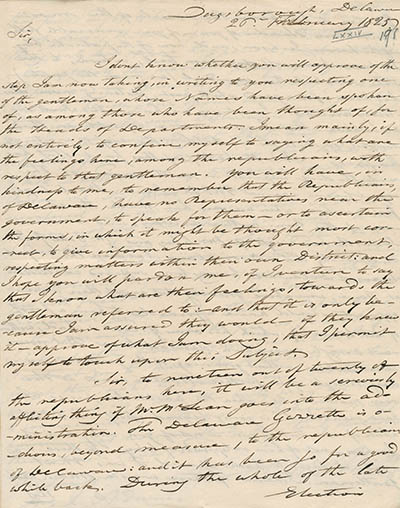 Dagsborough, Delaware
26th February 1825
LXXIV 198
Sir,
I dont know whether you will approve of the
step I am now taking, in writing to you respecting one
of the gentlemen, whose Names have been spoken
of, as among those who have been thought of for
the Heads of Departments. I mean mainly, if
not entirely, to confine myself to saying what are
the feelings here, among the republicans, with
respect to that gentleman. You will have, in
kindness to me, to remember that the Republicans,
of Delaware, have no Representatives near the
government, to speak for them — or to ascertain
the forms, in which it might be thought most cor-
rect, to give information to the government,
respecting matters within their own District: and
I hope you will pardon me, if I venture to say
that I know what are their feelings, towards the
gentleman referred to: and that it is only be-
cause I am assured they would — if they knew
it — approve of what I am doing, that I permit
myself to touch upon this Subject.
Sir, to nineteen out of twenty of
the republicans here, it will be a seriously
afflicting thing if Mr. McLean goes into the ad-
ministration. The Delaware Gazette is o-
dious, beyond measure, to the republicans
of Delaware: and it has been so for a good
while back. During the whole of the late
Election